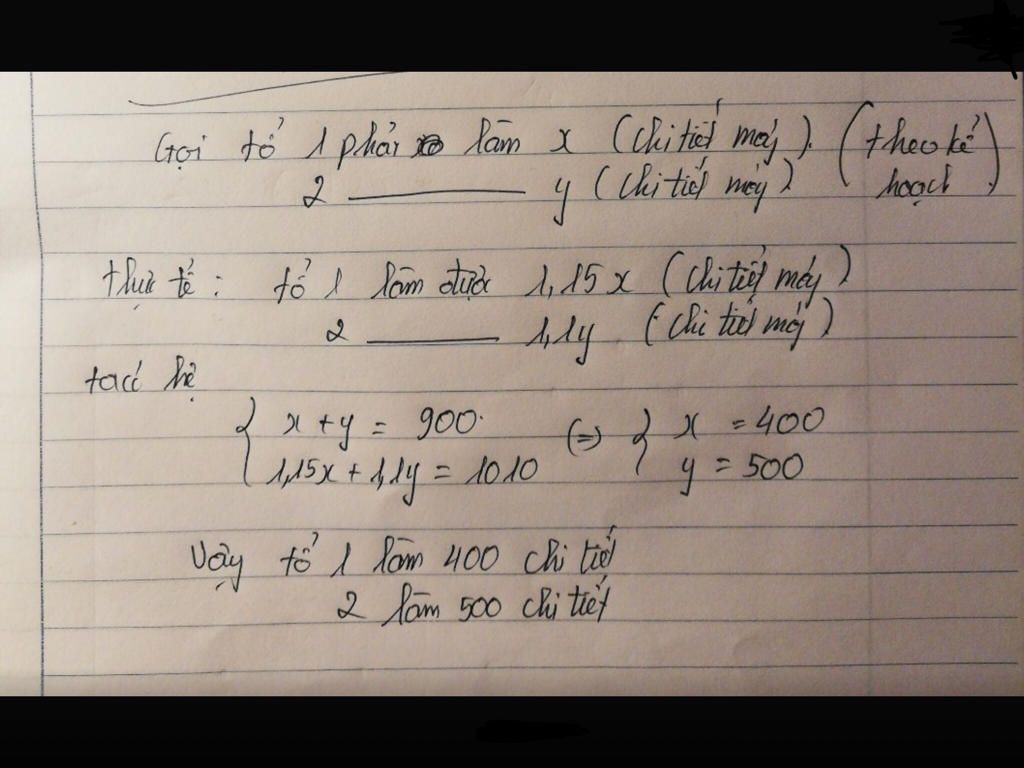 Gọi tổ 1 phải làm x (chi tiết máy). (theo kế hoạch)
2 ———— y (chi tiết máy)
thực tế: tổ 1 làm được 1,15x (chi tiết máy)
2 ———— 1,1y (chi tiết máy)
ta có hệ
{ x + y = 900 (=) { x = 400
1,15x + 1,1y = 1010 y = 500
Vậy tổ 1 làm 400 chi tiết
2 làm 500 chi tiết